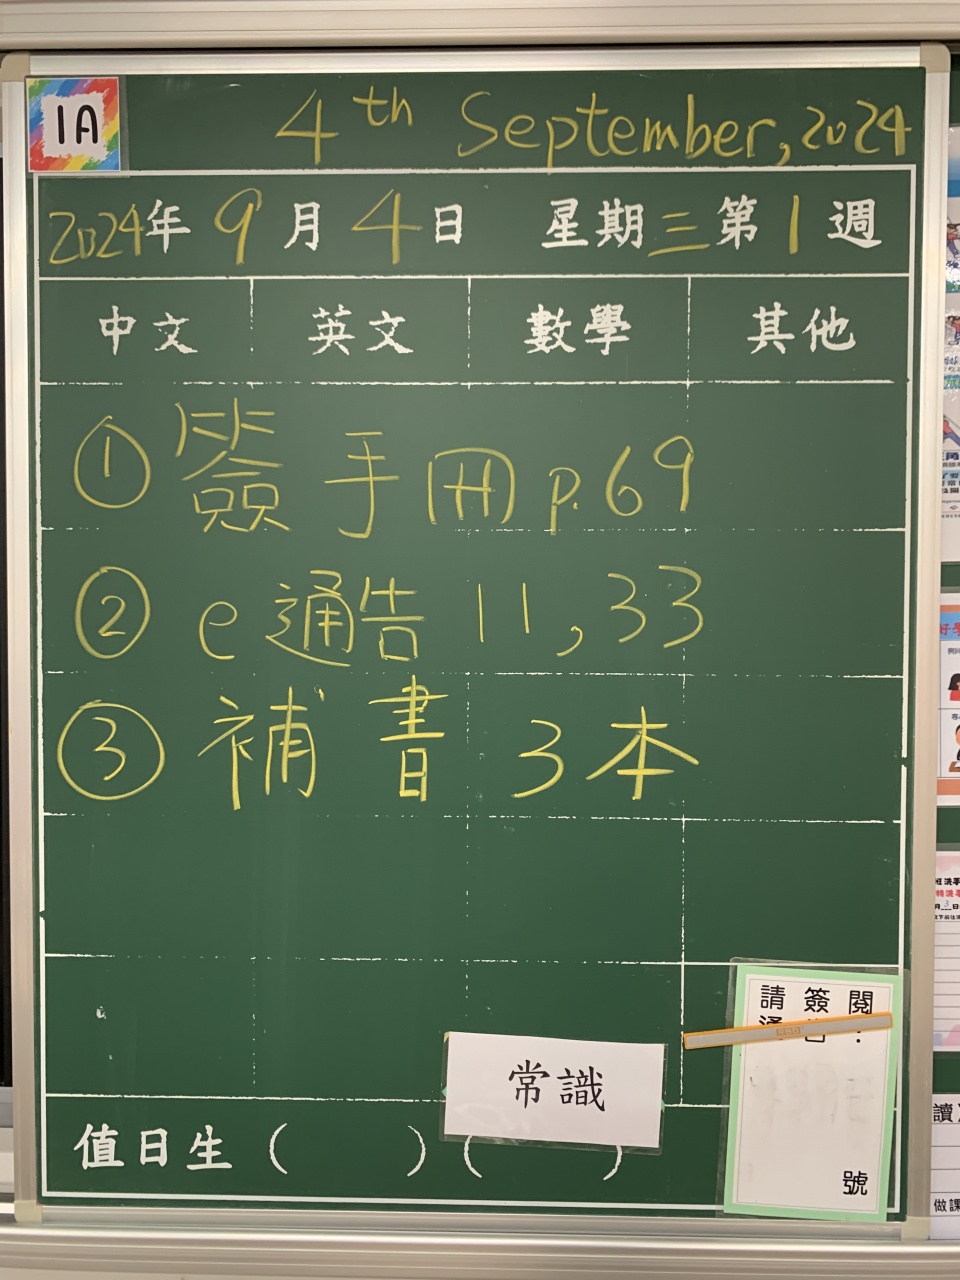 1A
4th September, 2024
2024年9月4日 星期三第1週
中文 英文 數學 其他
① 簽手冊 p.69
② e通告 11, 33
③ 補書 3本
請簽閱：
號
常識
值日生（ ）（ ）
好學
讀
做課